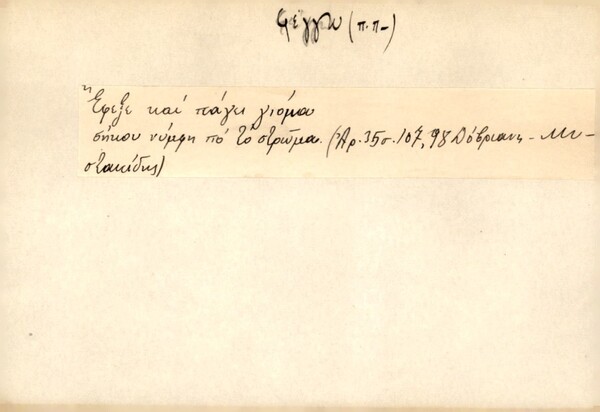 φέγγω (π.π-)
Ἔφεξε καί πάγει γιόμα
σήκου νύμφη πό τό στρῶμα. (Ἀρ. 35 σ. 107, 98 Δόβριανη - Μυ-
στακίδης)